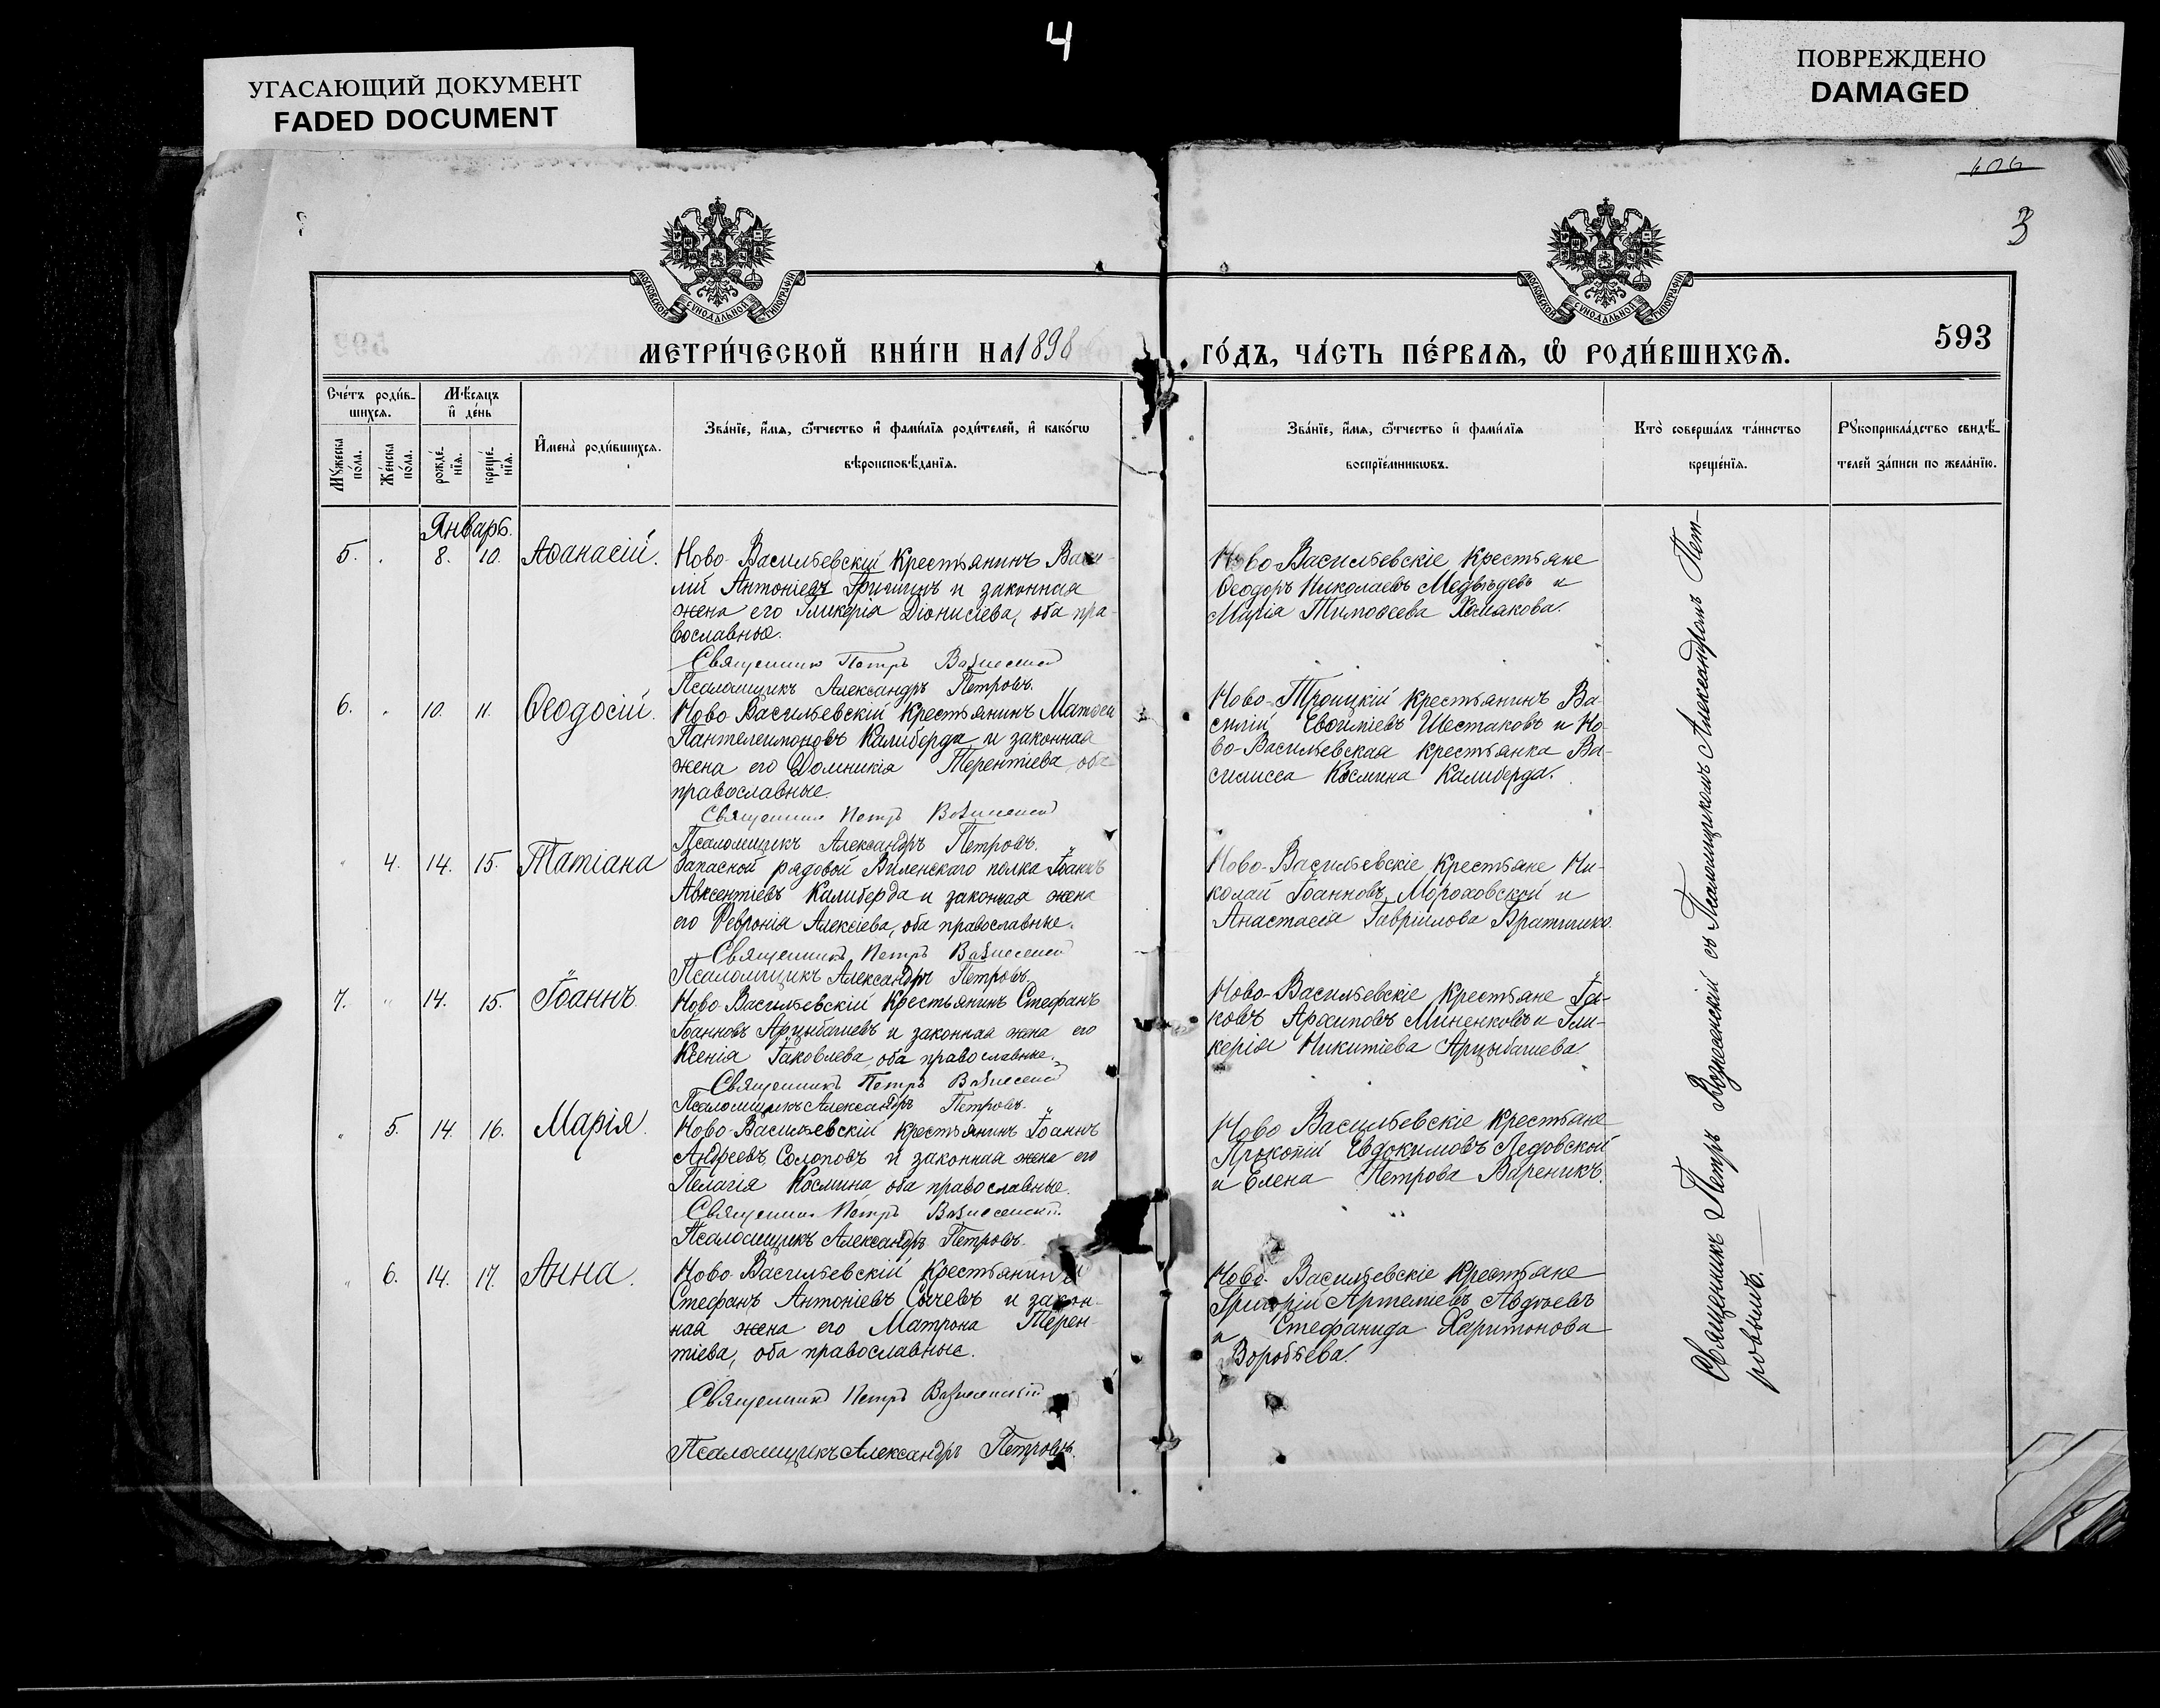 4
УГАСАЮЩИЙ ДОКУМЕНТ
FADED DOCUMENT
ПОВРЕЖДЕНО
DAMAGED
606
3
МОСКОВСКОЙ СѴНОДАЛЬНОЙ ТИПОГРАФІИ
МОСКОВСКОЙ СѴНОДАЛЬНОЙ ТИПОГРАФІИ
593
МЕТРИ́ЧЕСКОЙ КНИ́ГИ НА 1898 ГО́ДЪ, ЧА́СТЬ ПЕ́РВАѦ, Ѽ РОДИ́ВШИХСѦ.
Сче́тъ роди́в-
шихсѧ.
Мꙋ́жеска
по́ла.
Же́нска
по́ла.
Мѣ́сѧцъ
и҆ де́нь
рожде́-
нїѧ.
креще́-
нїѧ.
И҆мена̀ роди́вшихсѧ.
Зва́нїе, и҆́мѧ, ѻ҆́тчество и҆ фами́лїѧ роди́телей, и҆ како́гѡ
вѣроисповѣ́данїѧ.
Зва́нїе, и҆́мѧ, ѻ҆́тчество и҆ фами́лїѧ
воспрїе́мникѡвъ.
Кто̀ соверша́лъ та́инство
креще́нїѧ.
Рꙋкоприкла́дство свидѣ́-
телей за́писи по жела́нїю.
Январь.
5. 8. 10. Аѳанасій.
Ново-Васильевскій крестьянинъ Васи-
лій Антоніевъ Гришинъ и законная
жена его Гликерія Діонисіева, оба пра-
вославные.
Священникъ Петръ Вознесенскій
Псаломщикъ Александръ Петровъ.
Ново-Васильевскіе крестьяне
Ѳеодоръ Николаевъ Медвѣдевъ и
Марія Тимоѳеева Хомакова.
6. " 10. 11. Ѳеодосій.
Ново-Васильевскій крестьянинъ Матѳей
Пантелеимоновъ Калиберда и законная
жена его Домникія Терентіева оба
православные.
Священникъ Петръ Вознесенскій
Псаломщикъ Александръ Петровъ.
Ново-Троицкій крестьянинъ Ва-
силій Евѳиміевъ Шестаковъ и Но-
во-Васильевская крестьянка Ва-
силисса Космина Калиберда.
" 4. 14. 15. Татіана
Запасной рядовой Виленскаго полка Іоаннъ
Авксентіевъ Калиберда и законная жена
его Февронія Алексіева, оба православные.
Священникъ Петръ Вознесенскій
Псаломщикъ Александръ Петровъ.
Ново-Васильевскіе крестьяне Ни-
колай Іоанновъ Мороховской и
Анастасія Гавріилова Братишко.
7. " 14. 15. Іоаннъ
Ново-Васильевскій крестьянинъ Стефанъ
Іоанновъ Арцыбашевъ и законная жена его
Ксенія Іаковлева, оба православные.
Священникъ Петръ Вознесенскій
Псаломщикъ Александръ Петровъ.
Ново-Васильевскіе крестьяне Іа-
ковъ Архиповъ Миненковъ и Гли-
керія Никитіева Арцыбашева.
" 5. 14. 16. Марія.
Ново-Васильевскій крестьянинъ Іоаннъ
Андреевъ Солоповъ и законная жена его
Пелагія Космина, оба православные.
Священникъ Петръ Вознесенскій.
Псаломщикъ Александръ Петровъ.
Ново Васильевскіе крестьяне
Прокопій Евдокимовъ Ледовской
и Елена Петрова Вареникъ.
" 6. 14. 17. Анна.
Ново-Васильевскій крестьянинъ
Стефанъ Антоніевъ Сычевъ и закон-
ная жена его Матрона Терен-
тіева, оба православные.
Священникъ Петръ Вознесенскій
Псаломщикъ Александръ Петровъ.
Ново-Васильевскіе крестьяне
Григорій Артеміевъ Авдѣевъ
и Стефанида Харитонова
Воробьева.
Священникъ Петръ Вознесенскій съ Псаломщикомъ Александромъ Пет-
ровымъ.